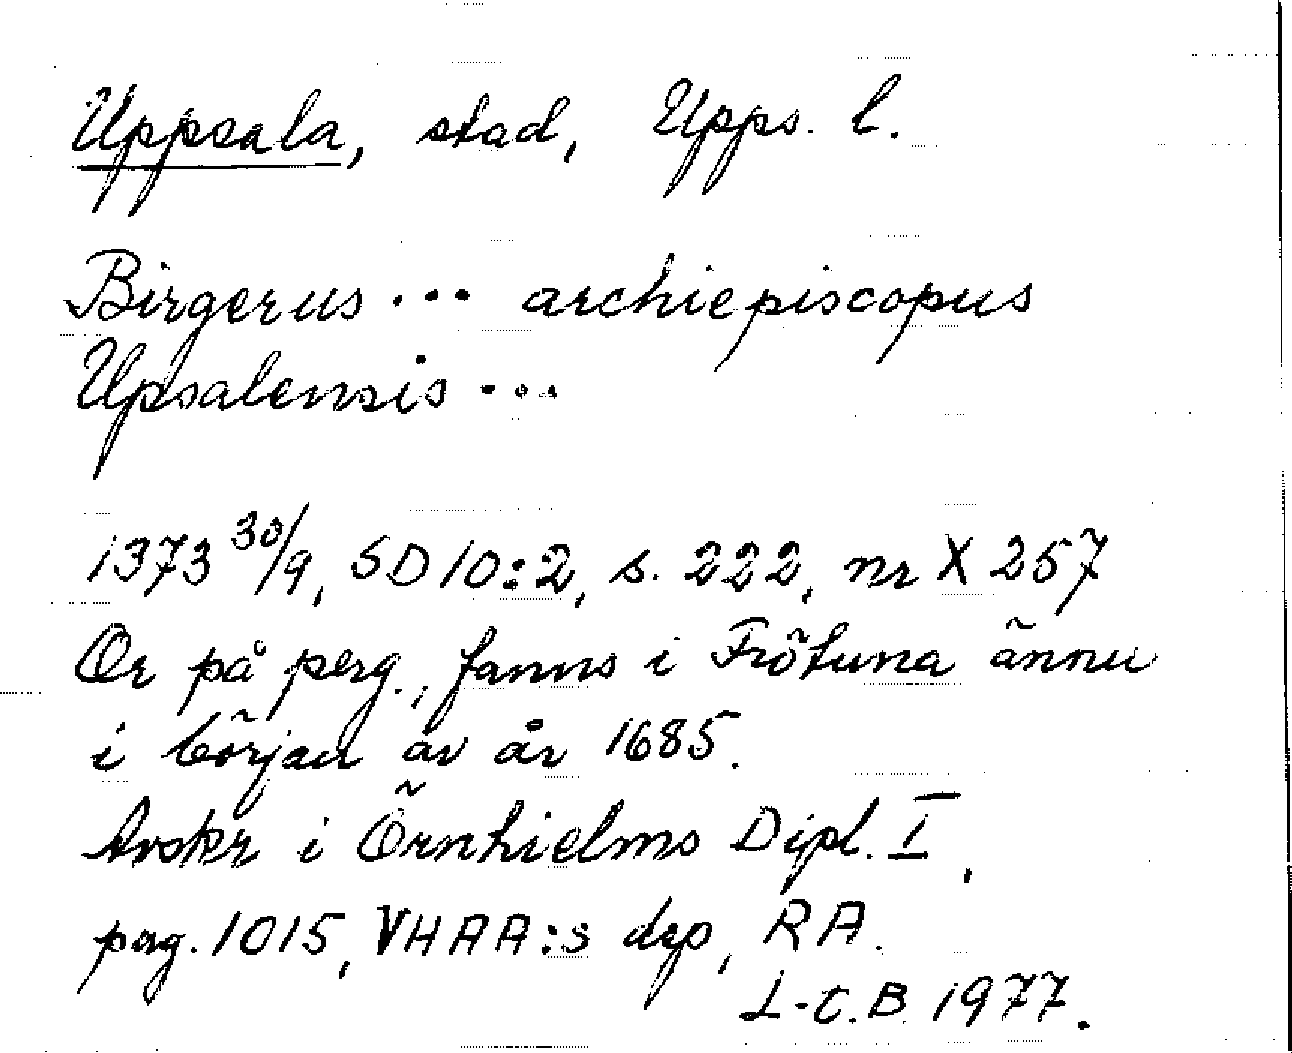 Uppsala, stad, Upps. l.
Birgerus ... archiepiscopus
Upsalensis ...
1373 30/9, SD 10:2, s. 222, nr X 257
Or på perg., fanns i Frötuna ännu
i början av år 1685.
Avskr i Örnhielms Dipl. I,
pag. 1015, VHAA:s dep, RA.
L-C.B. 1977.